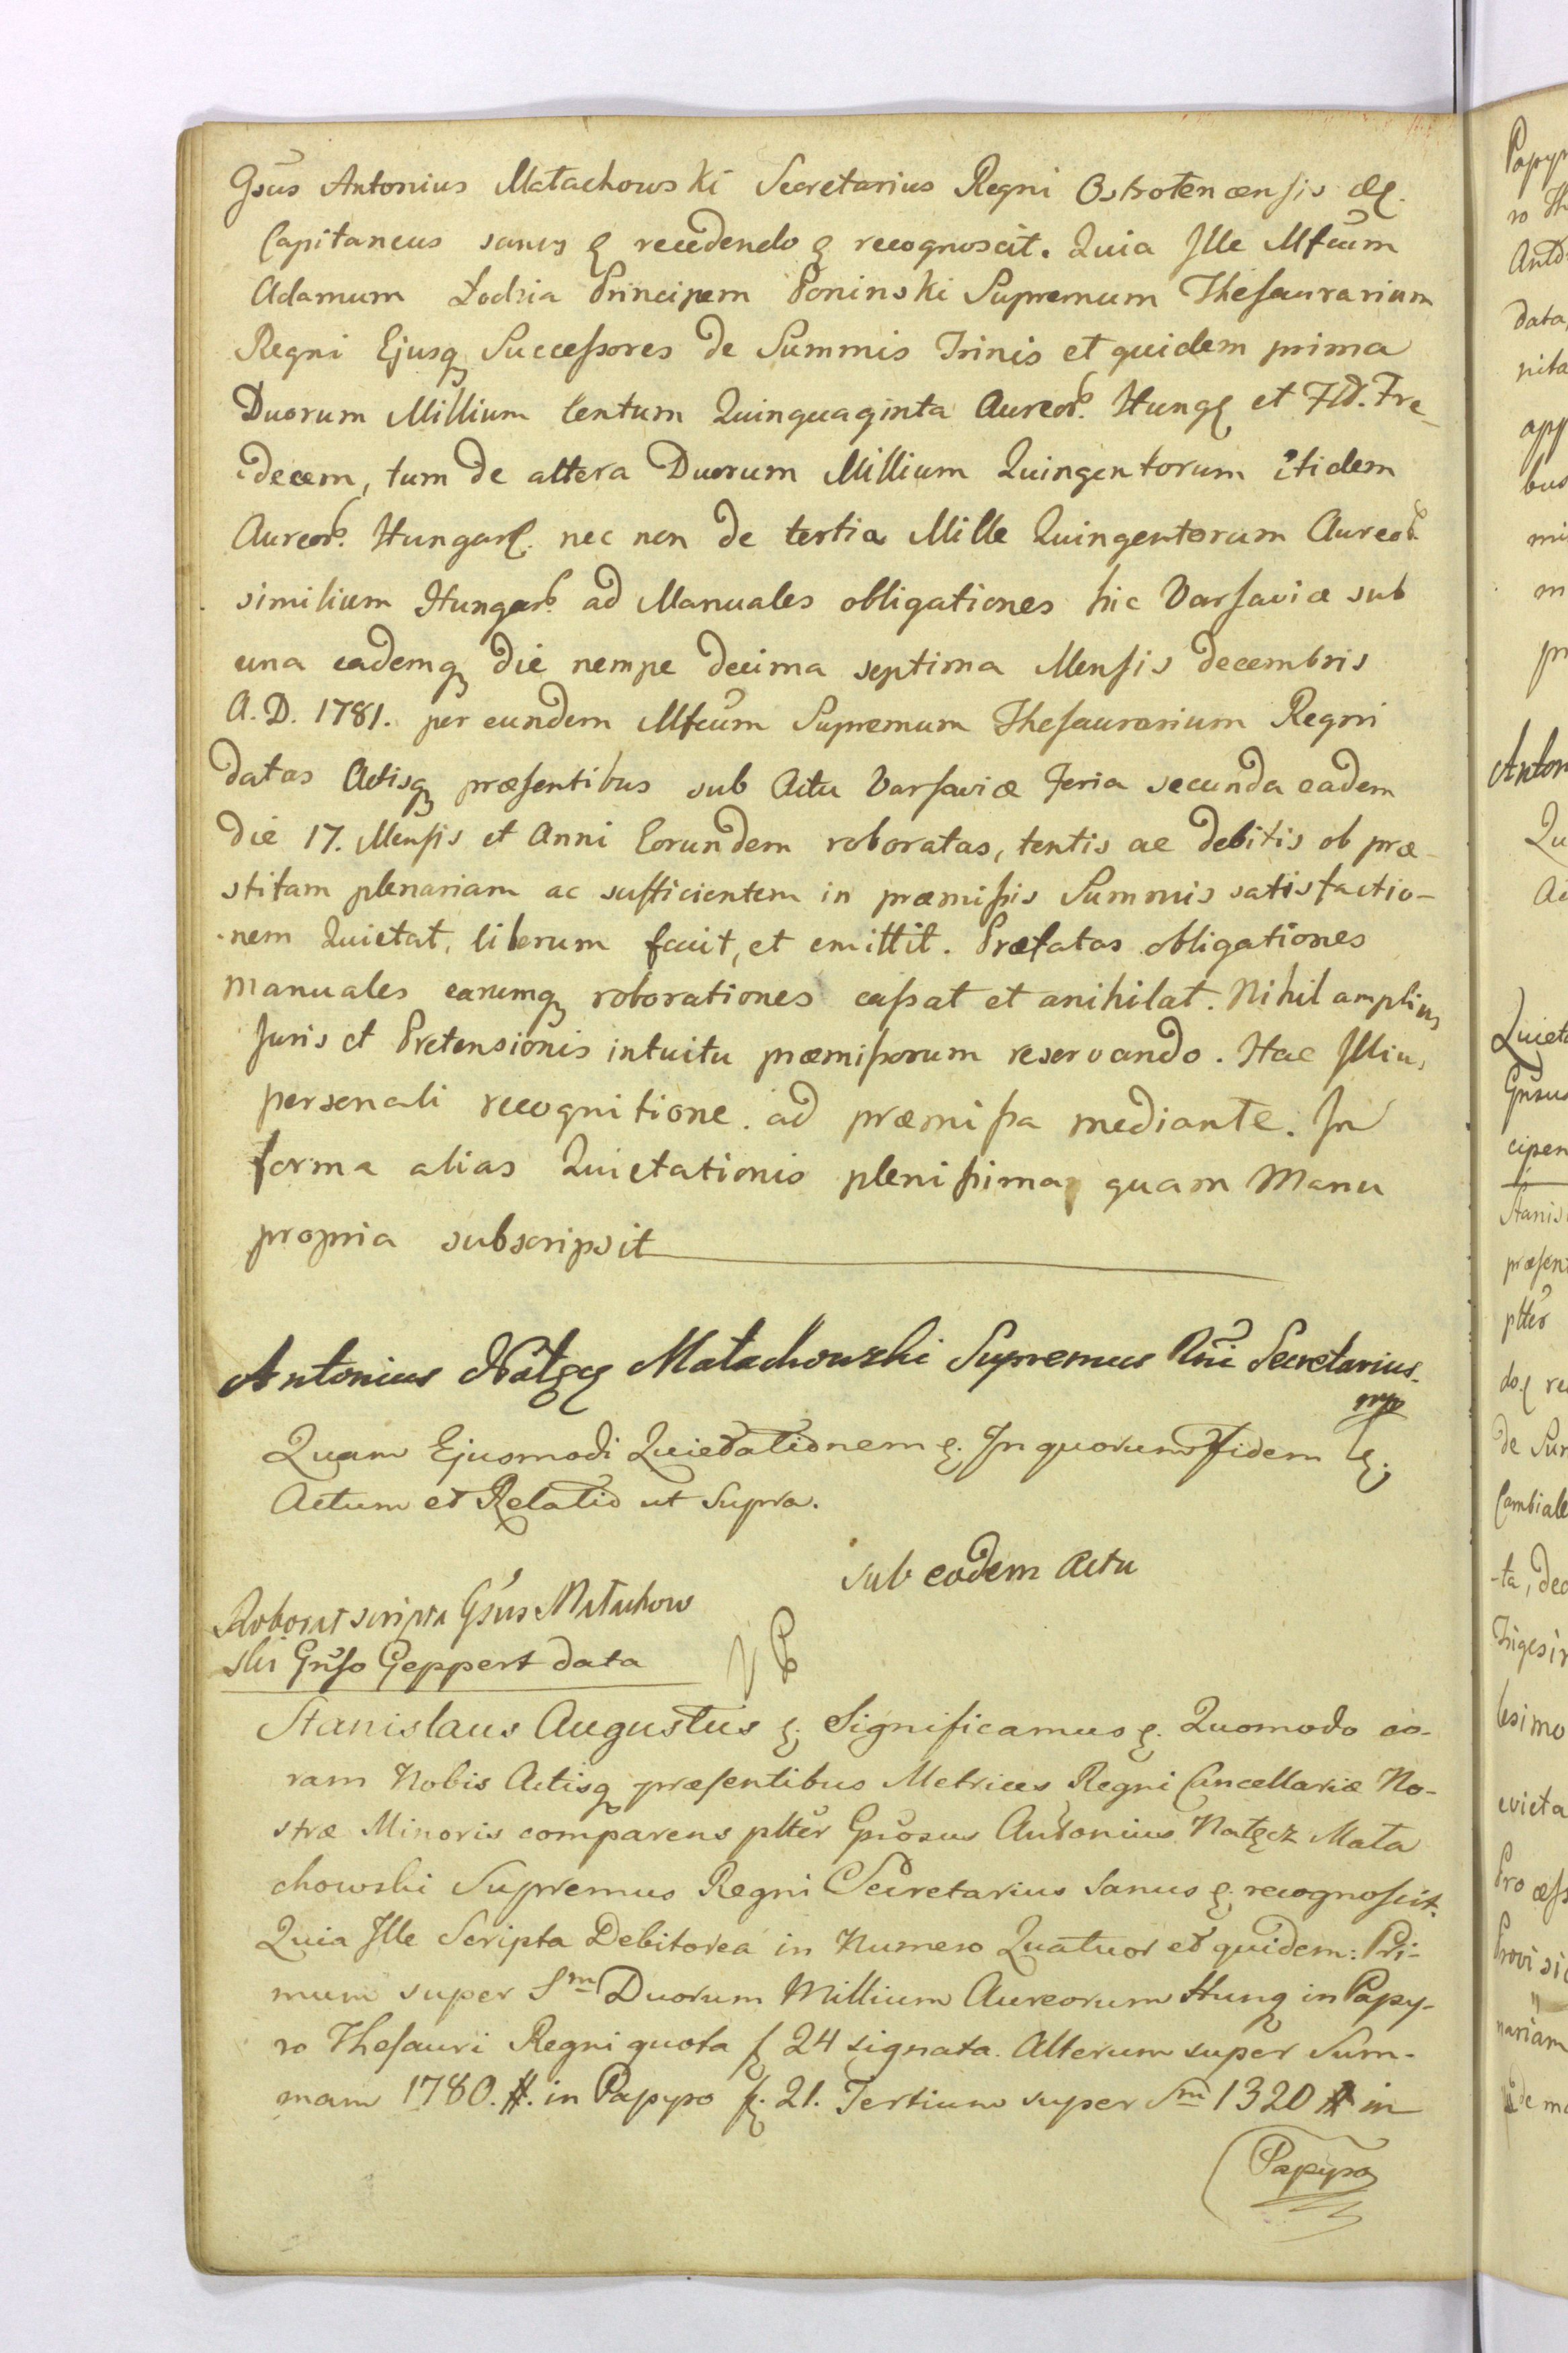 Gsus Antonius Małachowski Secretarius Regni Ostrołencensis &c.
Capitaneus sanus & recedendo & recognoscit. Quia Ille Mfcum
Adamum Łodzia Principem Poninski Supremum Thesaurarium
Regni Ejusq Successores de Summis Trinis et quidem prima
Duorum Millium Centum Quinquaginta Aureor. Hung et Fld. Tre-
decem, tum de altera Duorum Millium Quingentorum itidem
Aureor. Hungar. nec non de tertia Mille Quingentorum Aureor.
similium Hungar. ad Manuales obligationes hic Varsaviæ sub
una eademq die nempe decima septima Mensis decembris
A.D. 1781. per eundem Mfcum Supremum Thesaurarium Regni
datas Actisq præsentibus sub Actu Varsaviæ feria secunda eadem
die 17. Mensis et Anni Eorundem roboratas, tentis ac debitis ob præ-
stitam plenariam ac sufficientem in præmissis Summis satisfactio-
nem Quietat, liberum facit, et emittit. Præfatas obligationes
manuales earumq roborationes cassat et anihilat. Nihil amplius
Juris et Pretensionis intuitu præmissorum reservando. Hac Illius
personali recognitione ad præmissa mediante. In
forma alias Quietationis plenissima quam Manu
propria subscripsit
Antonius Nałęcz Małachowski Supremus Rni Secretarius.
mp
Quam Ejusmodi Quietationem &. In quorum Fidem &.
Actum et Relatio ut Supra.
sub eodem Actu
Roborat scripta Gsus Małachow
ski Gnso Geppert data
Stanislaus Augustus &. Significamus &. Quomodo co-
ram Nobis Actisq præsentibus Metrices Regni Cancellariæ No-
stræ Minoris comparens plter Gnosus Antonius Nałęcz Mała
chowski Supremus Regni Secretarius Sanus &. recognoscit.
Quia Ille Scripta Debitorea in Numero Quatuor et quidem: Pri-
mum super Sm Duorum Millium Aureorum Hung in Papy-
ro Thesauri Regni quota f 24 signata. Alterum super Sum-
mam 1780. #. in Papyro f. 21. Tertium super Sm 1320 # in
Papyro